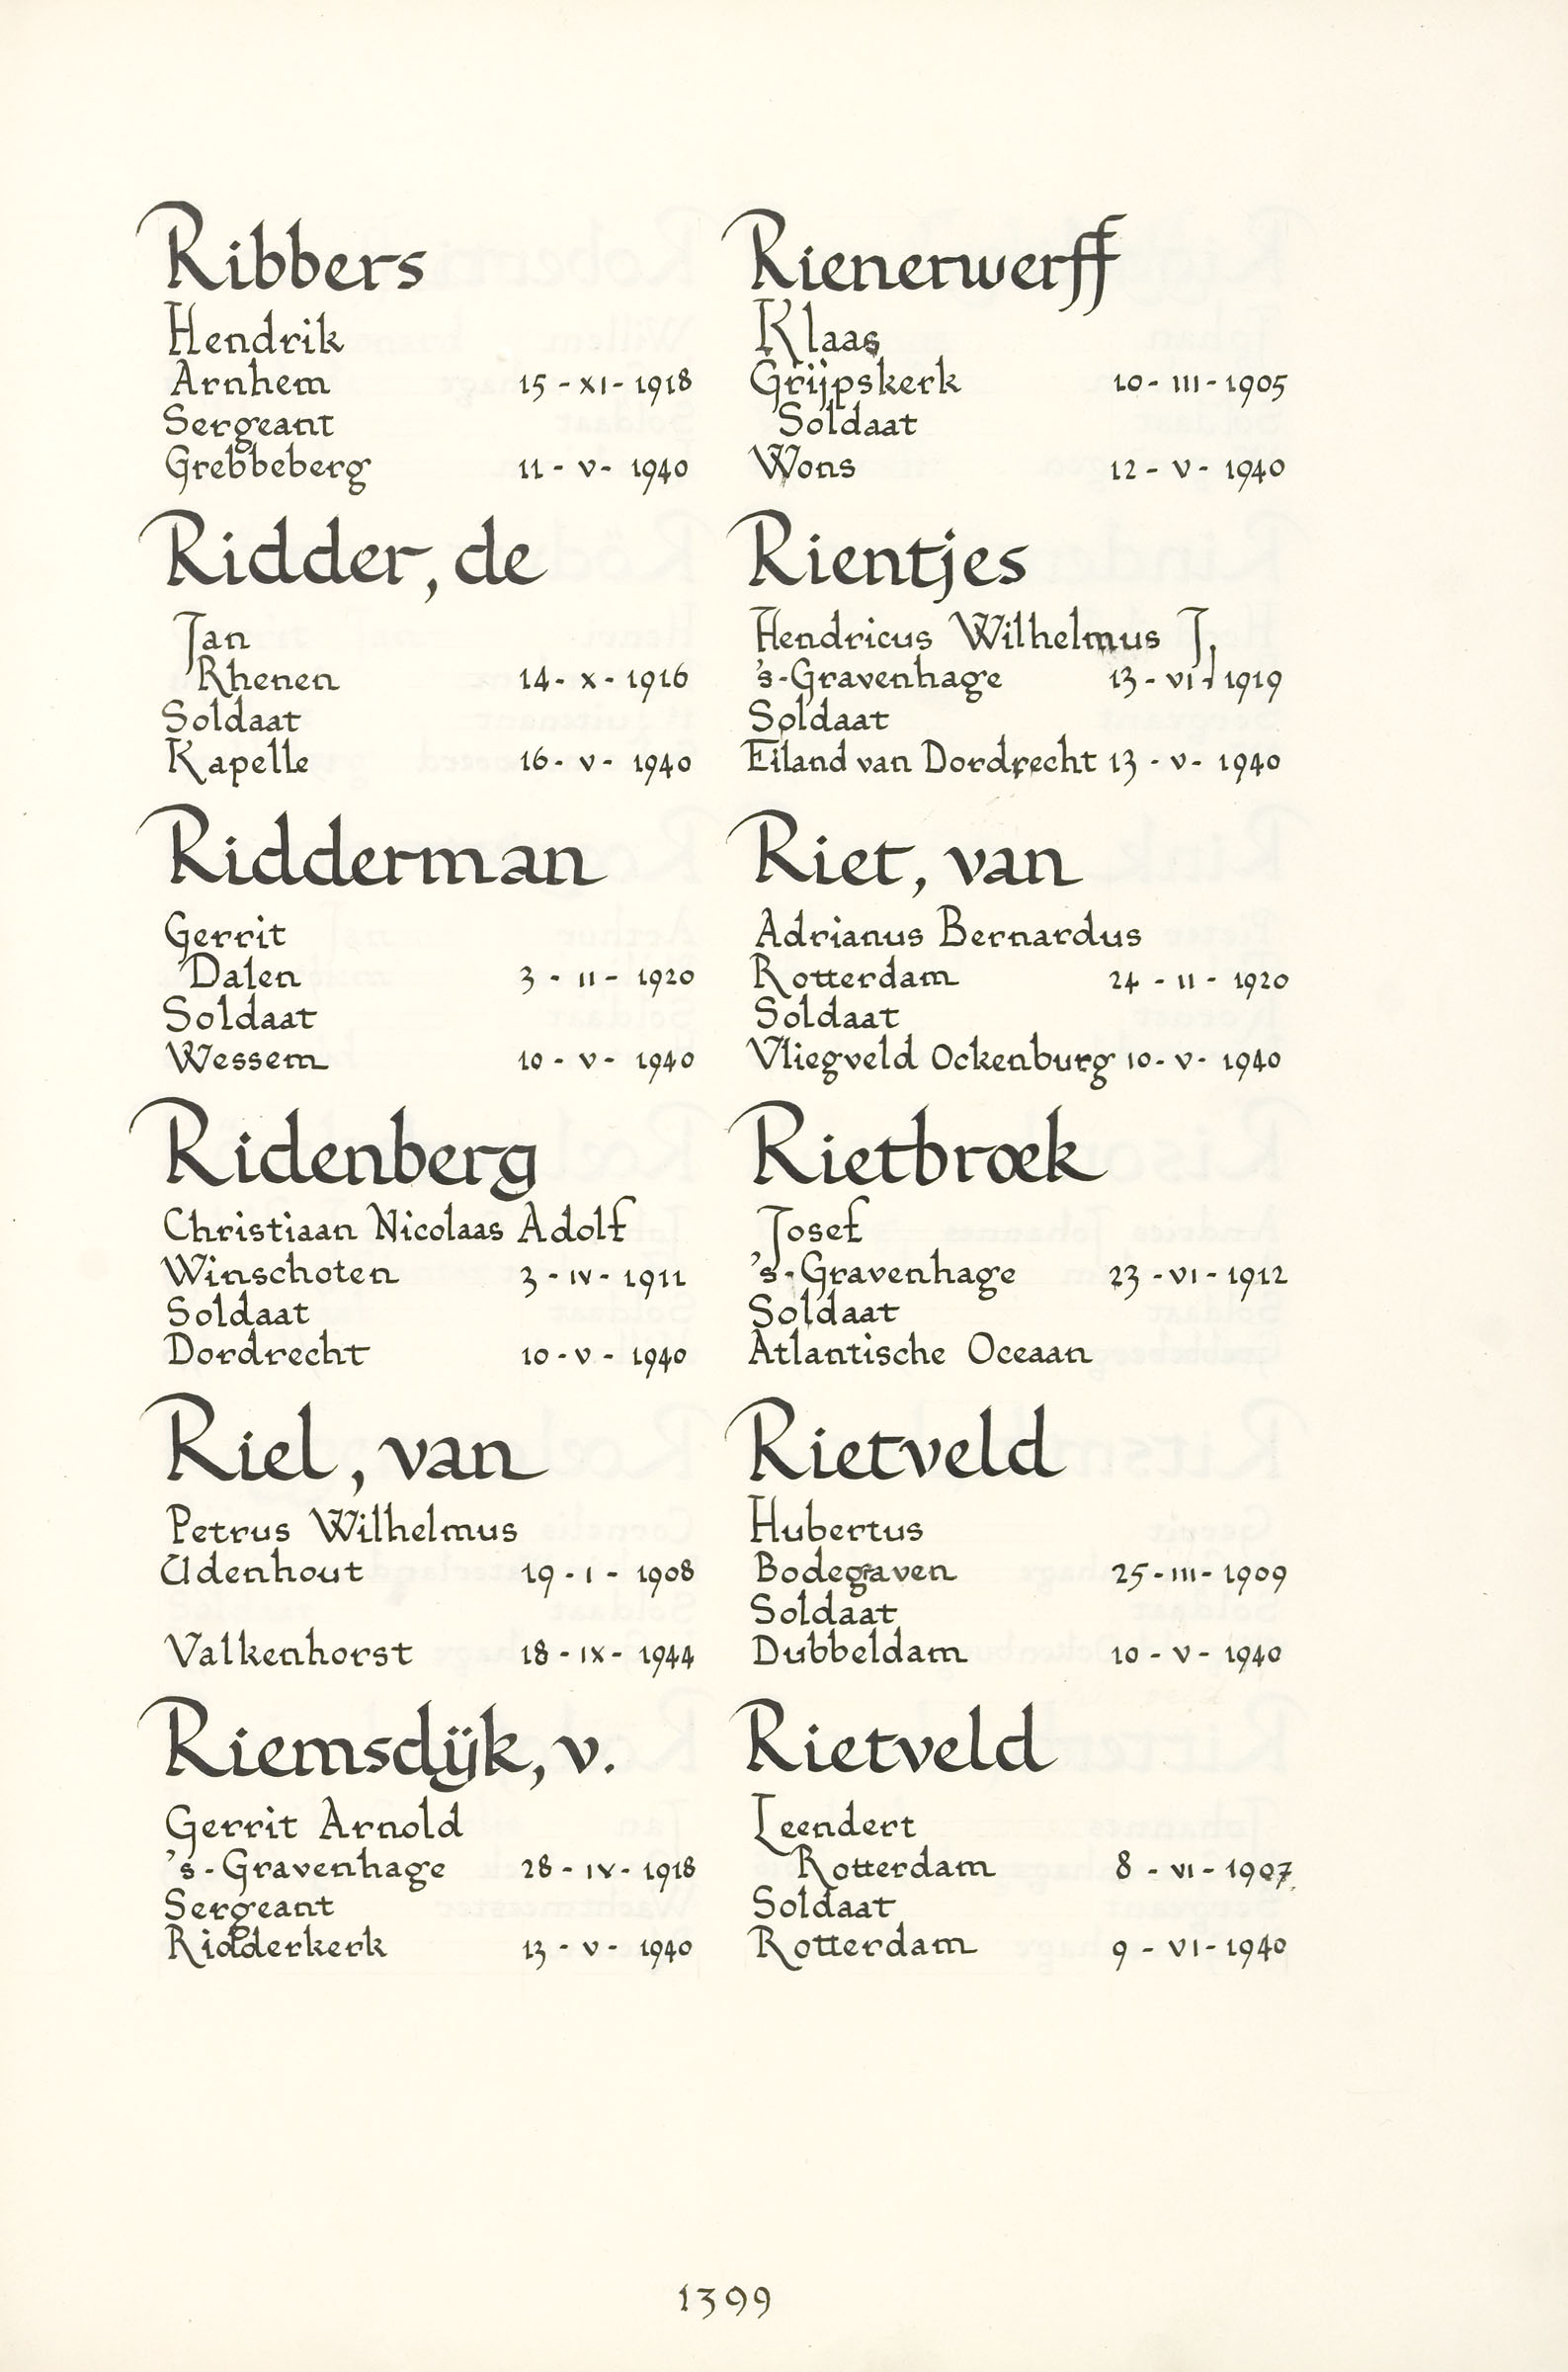 Ribbers
Hendrik
Arnhem 15 - XI - 1918
Sergeant
Grebbeberg 11 - V - 1940
Ridder, de
Jan
Rhenen 14 - X - 1916
Soldaat
Kapelle 16 - V - 1940
Ridderman
Gerrit
Dalen 3 - II - 1920
Soldaat
Wessem 10 - V - 1940
Ridenberg
Christiaan Nicolaas Adolf
Winschoten 3 - IV - 1911
Soldaat
Dordrecht 10 - V - 1940
Riel, van
Petrus Wilhelmus
Udenhout 19 - I - 1908
Valkenhorst 18 - IX - 1944
Riemsdijk, v.
Gerrit Arnold
's-Gravenhage 28 - IV - 1918
Sergeant
Ridderkerk 13 - V - 1940
Rienerwerff
Klaas
Grijpskerk 10 - III - 1905
Soldaat
Wons 12 - V - 1940
Rientjes
Hendricus Wilhelmus J.
's-Gravenhage 13 - VI - 1919
Soldaat
Eiland van Dordrecht 13 - V - 1940
Riet, van
Adrianus Bernardus
Rotterdam 24 - II - 1920
Soldaat
Vliegveld Ockenburg 10 - V - 1940
Rietbroek
Josef
's-Gravenhage 23 - VI - 1912
Soldaat
Atlantische Oceaan
Rietveld
Hubertus
Bodegraven 25 - III - 1909
Soldaat
Dubbeldam 10 - V - 1940
Rietveld
Leendert
Rotterdam 8 - VI - 1907
Soldaat
Rotterdam 9 - VI - 1940
1399